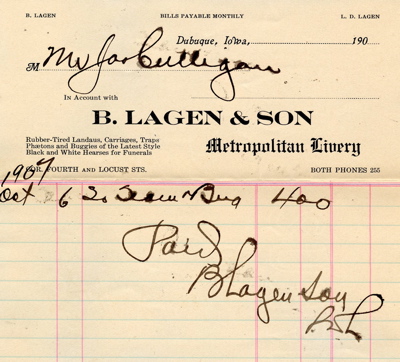 B. LAGEN BILLS PAYABLE MONTHLY L. D. LAGEN
Dubuque, Iowa, 190
M Mr Jas Culligan
In Account with
B. LAGEN & SON
Rubber-Tired Landaus, Carriages, Traps
Phætons and Buggies of the Latest Style
Black and White Hearses for Funerals
Metropolitan Livery
COR. FOURTH AND LOCUST STS. BOTH PHONES 255
1907
Oct 6 To Team & Bug 4 00
Paid
B Lagen & Son